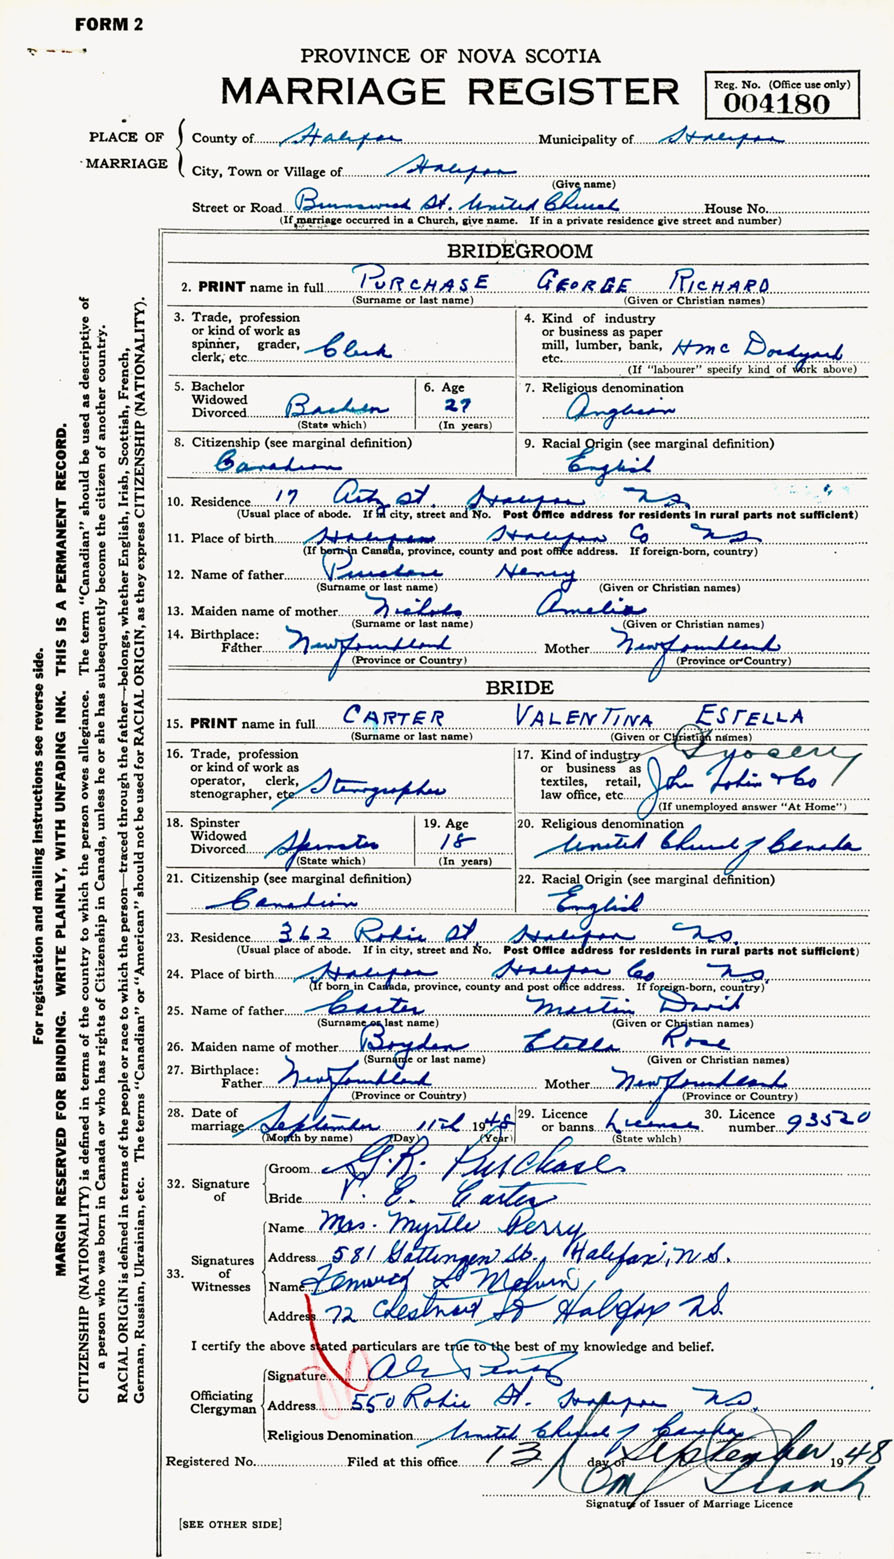 FORM 2
PROVINCE OF NOVA SCOTIA
MARRIAGE REGISTER
Reg. No. (Office use only)
004180
PLACE OF MARRIAGE
County of Halifax Municipality of Halifax
City, Town or Village of Halifax
(Give name)
Street or Road Brunswick St. United Church House No.
(If marriage occurred in a Church, give name. If in a private residence give street and number)
BRIDEGROOM
2. PRINT name in full PURCHASE GEORGE RICHARD
(Surname or last name) (Given or Christian names)
3. Trade, profession or kind of work as spinner, grader, clerk, etc. Clerk
4. Kind of industry or business as paper mill, lumber, bank, etc. HMC Dockyard
(If "labourer" specify kind of work above)
5. Bachelor Widowed Divorced Bachelor
(State which)
6. Age 27
(In years)
7. Religious denomination Anglican
8. Citizenship (see marginal definition) Canadian
9. Racial Origin (see marginal definition) English
10. Residence 17 St. Halifax NS
(Usual place of abode. If in city, street and No. Post Office address for residents in rural parts not sufficient)
11. Place of birth Halifax Halifax Co NS
(If born in Canada, province, county and post office address. If foreign-born, country)
12. Name of father Purchase Henry
(Surname or last name) (Given or Christian names)
13. Maiden name of mother Nichols Amelia
(Surname or last name) (Given or Christian names)
14. Birthplace: Father Newfoundland Mother Newfoundland
(Province or Country) (Province or Country)
BRIDE
15. PRINT name in full CARTER VALENTINA ESTELLA
(Surname or last name) (Given or Christian names)
16. Trade, profession or kind of work as operator, clerk, stenographer, etc. Stenographer
17. Kind of industry or business as textiles, retail, law office, etc. Grocery John Tobin & Co
(If unemployed answer "At Home")
18. Spinster Widowed Divorced Spinster
(State which)
19. Age 18
(In years)
20. Religious denomination United Church of Canada
21. Citizenship (see marginal definition) Canadian
22. Racial Origin (see marginal definition) English
23. Residence 362 Robie St Halifax NS.
(Usual place of abode. If in city, street and No. Post Office address for residents in rural parts not sufficient)
24. Place of birth Halifax Halifax Co NS
(If born in Canada, province, county and post office address. If foreign-born, country)
25. Name of father Carter Martin David
(Surname or last name) (Given or Christian names)
26. Maiden name of mother Boyden Etella Rose
(Surname or last name) (Given or Christian names)
27. Birthplace: Father Newfoundland Mother Newfoundland
(Province or Country) (Province or Country)
28. Date of marriage September 11th 1948
(Month by name) (Day) (Year)
29. Licence or banns License
(State which)
30. Licence number 93520
32. Signature of
Groom G. R. Purchase
Bride V. E. Carter
33. Signatures of Witnesses
Name Mrs. Myrtle Perry
Address 581 Gottingen St., Halifax, N.S.
Name Fenwick Melvin
Address 72 Chestnut St Halifax NS.
I certify the above stated particulars are true to the best of my knowledge and belief.
Officiating Clergyman
Signature
Address 550 Robie St. Halifax NS.
Religious Denomination United Church of Canada
Registered No. Filed at this office 13 day of September 1948
Signature of Issuer of Marriage Licence
[SEE OTHER SIDE]
For registration and mailing instructions see reverse side.
MARGIN RESERVED FOR BINDING. WRITE PLAINLY, WITH UNFADING INK. THIS IS A PERMANENT RECORD.
CITIZENSHIP (NATIONALITY) is defined in terms of the country to which the person owes allegiance. The term "Canadian" should be used as descriptive of
a person who was born in Canada or who has rights of Citizenship in Canada, unless he or she has subsequently become the citizen of another country.
RACIAL ORIGIN is defined in terms of the people or race to which the person—traced through the father—belongs, whether English, Irish, Scottish, French,
German, Russian, Ukrainian, etc. The terms "Canadian" or "American" should not be used for RACIAL ORIGIN, as they express CITIZENSHIP (NATIONALITY).